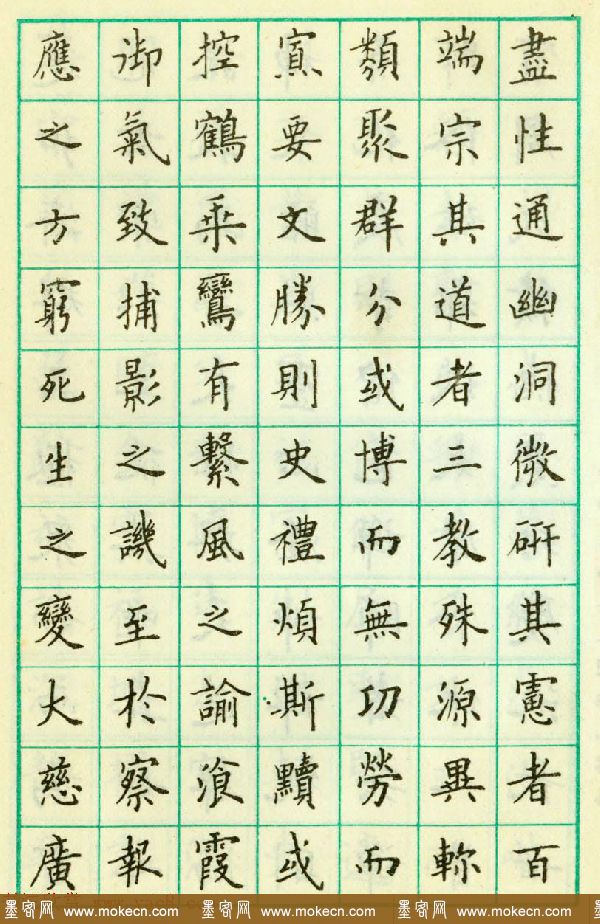 盡性通幽洞微研其憲者百
端宗其道者三教殊源異軫
類聚群分或博而無功勞而
寡要文勝則史禮煩斯黷或
控鶴乗鸞有繫風之諭湌霞
御氣致捕影之譏至於察報
應之方窮死生之變大慈廣
墨客网 www.mokecn.com 墨客网 www.mokecn.com 墨客网 www.mokecn.com 墨客网